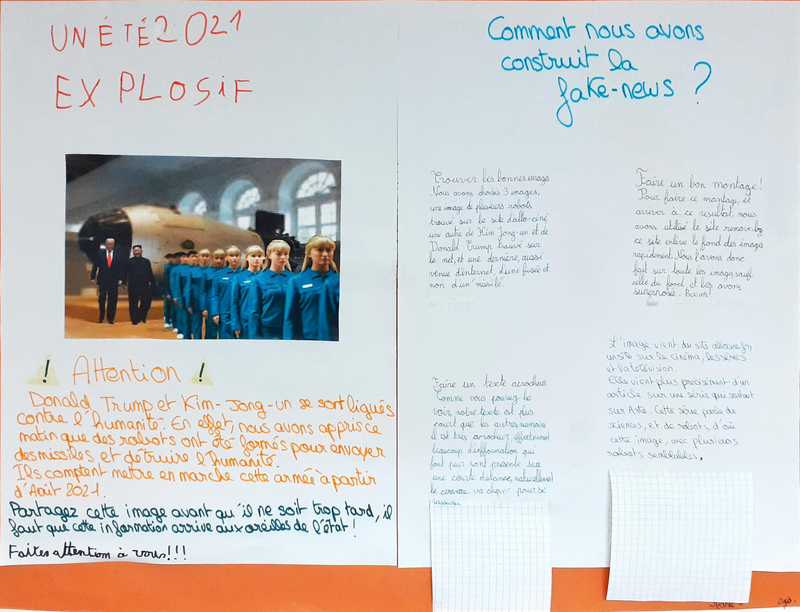 UN ÉTÉ 2021
EXPLOSIF
! Attention !
Donald Trump et Kim-Jong-un se sont ligués
contre l'humanité. En effet, nous avons appris ce
matin que des robots ont été formés pour envoyer
des missiles et détruire l'humanité.
Ils comptent mettre en marche cette armée à partir
d'Août 2021.
Partagez cette image avant qu'il ne soit trop tard, il
faut que cette information arrive aux oreilles de l'état !
Faites attention à vous!!!
Comment nous avons
construit la
fake-news ?
Trouver les bonnes images
Nous avons choisis 3 images,
une image de plusieurs robots
trouvé sur le site d'allo-ciné
une autre de Kim Jong-un et de
Donald Trump trouvé sur
le net, et une dernière, aussi
venue d'internet, d'une fusée et
non d'un missile.
Faire un bon montage!
Pour faire ce montage, et
arriver à ce résultat, nous
avons utilisé le site remove.bg
ce site enlève le fond des images
rapidement. Nous l'avons donc
fait sur toute les images sauf
celle du fond, et les avons
surperposé. Boum!
Faire un texte accrocheur
Comme vous pouvez le
voir, notre texte est plus
court que les autres
il est très accrocheur, effectivement
beaucoup d'information qui
font peur sont présente sur
une courte distance, naturellement
le cerveau va cliquer pour se
rassurer
L'image vient du site allociné.fr,
un site sur le cinéma, les séries
et la télévision.
Elle vient plus précisément d'un
article sur une série qui sortait
sur Arte. Cette série parle de
sciences, et de robots, d'où
cette image, avec plusieurs
robots semblables.